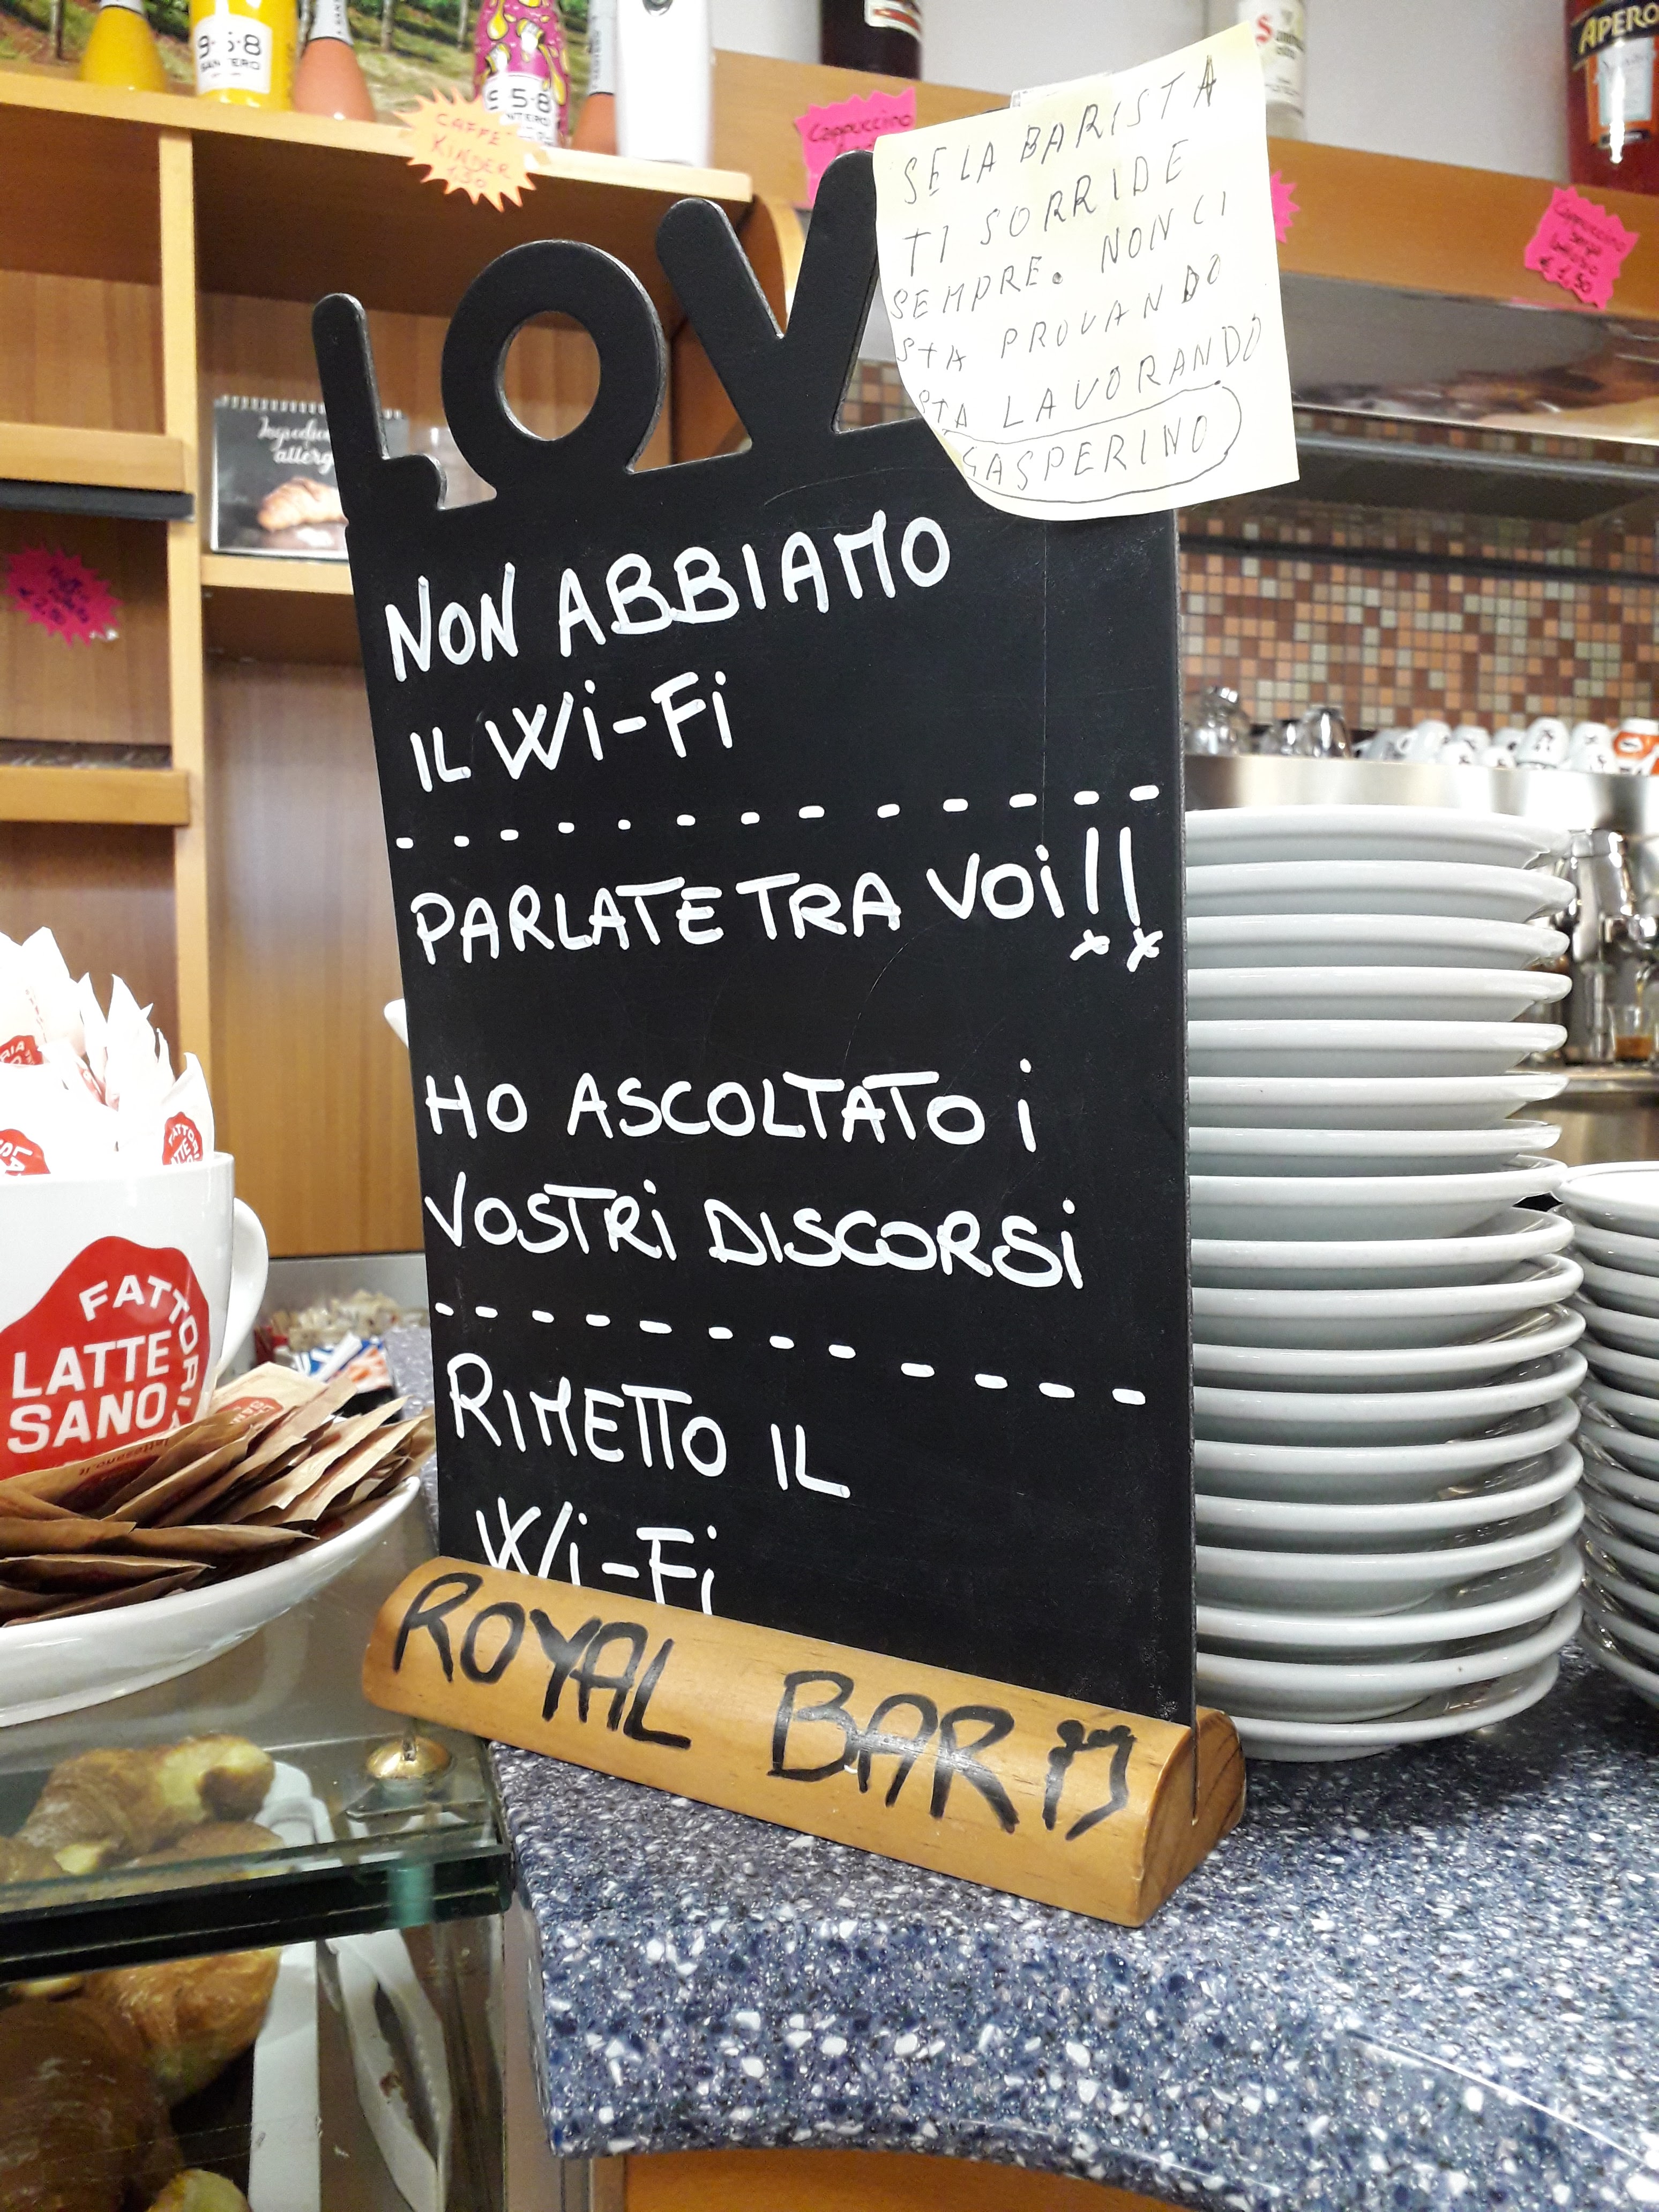 9.5.8
SANTERO
CAFFE'
KINDER
1,30
Cappuccino
APERO
Ingredien
allerg
SE LA BARISTA
TI SORRIDE
SEMPRE. NON CI
STA PROVANDO
STA LAVORANDO
GASPERINO
LOV
NON ABBIAMO
IL Wi-Fi
PARLATE TRA VOi!!
HO ASCOLTATO i
VOSTRi DISCORSi
RIMETTO IL
Wi-Fi
ROYAL BAR
FATTORIA
LATTE
SANO